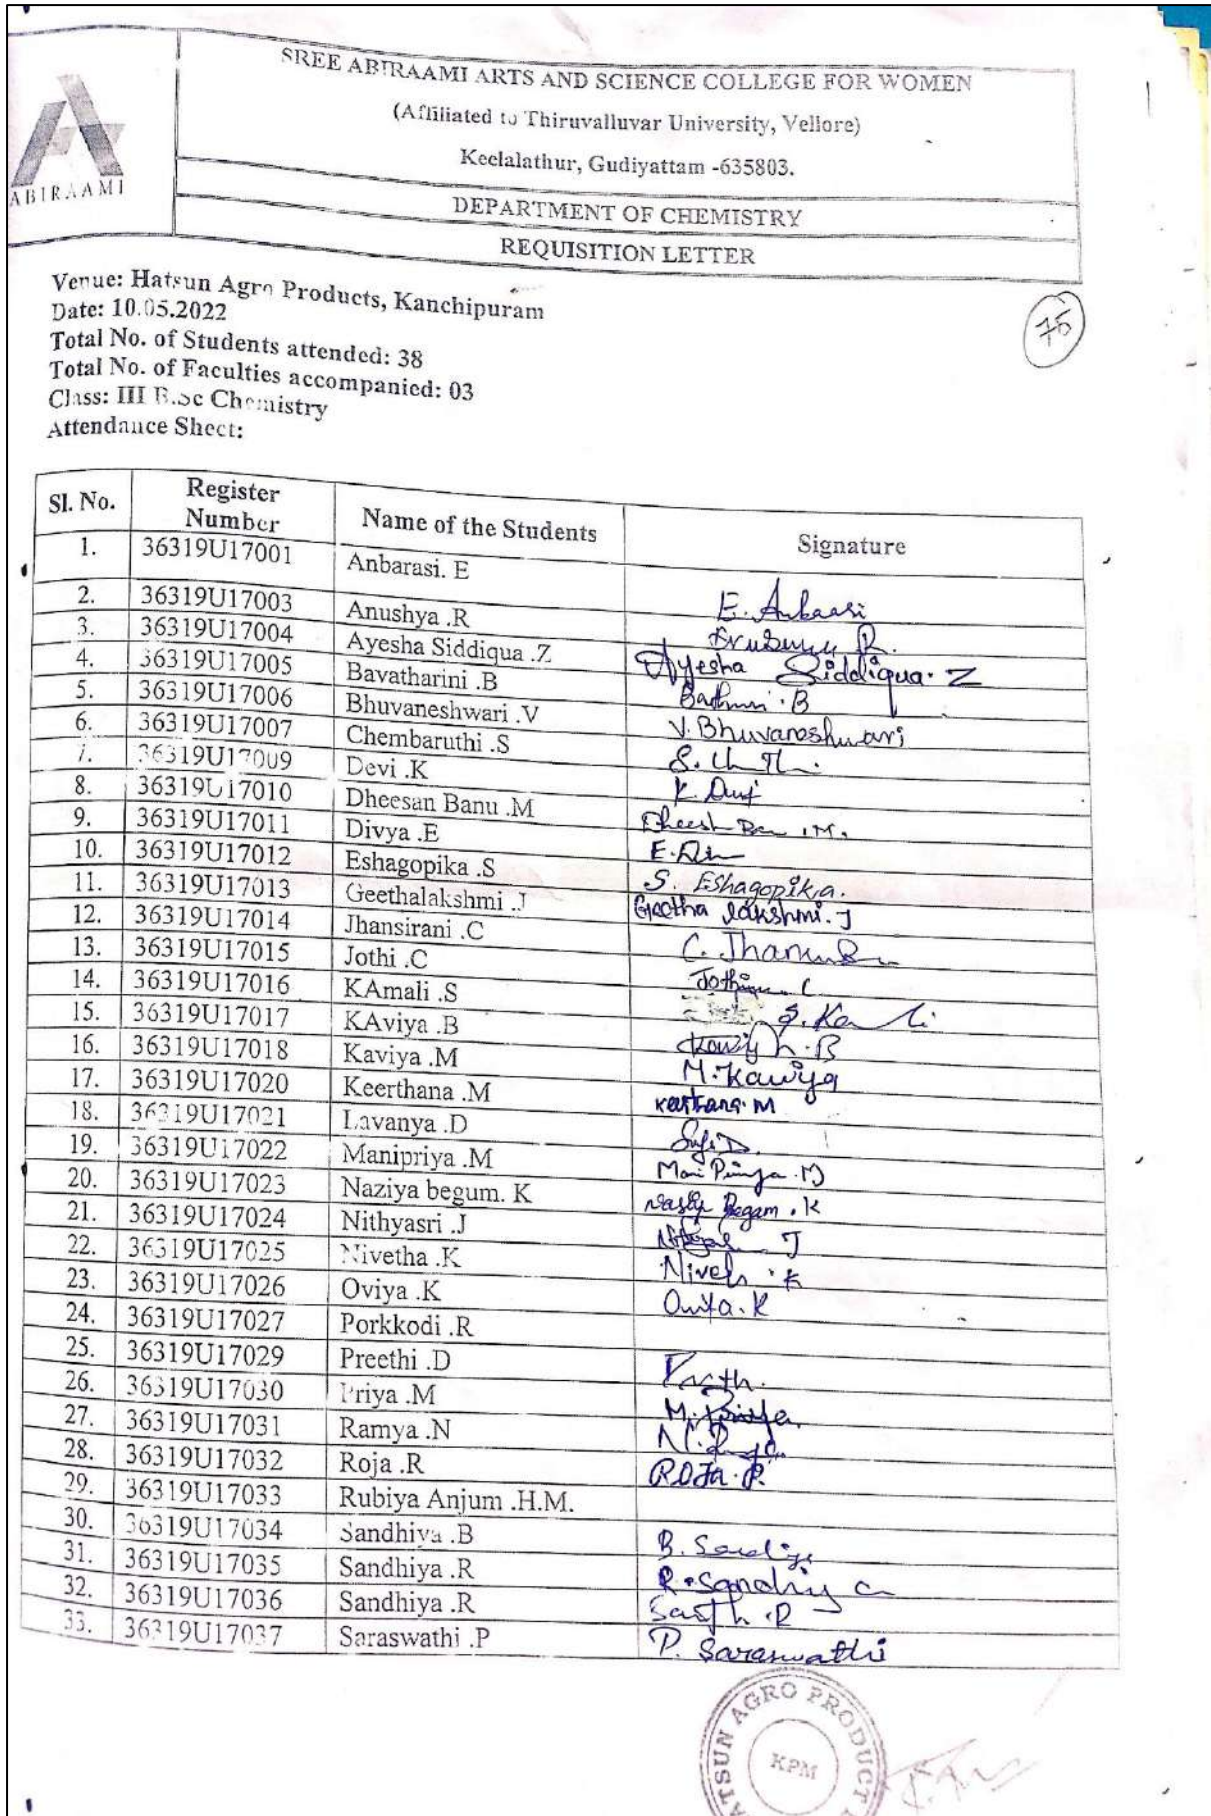 SREE ABIRAAMI ARTS AND SCIENCE COLLEGE FOR WOMEN
(Affiliated to Thiruvalluvar University, Vellore)
Keelalathur, Gudiyattam -635803.
ABIRAAMI
DEPARTMENT OF CHEMISTRY
REQUISITION LETTER
Venue: Hatsun Agro Products, Kanchipuram
Date: 10.05.2022
Total No. of Students attended: 38
Total No. of Faculties accompanied: 03
Class: III B.Sc Chemistry
Attendance Sheet:
Sl. No. Register Number Name of the Students Signature
1. 36319U17001 Anbarasi. E
2. 36319U17003 Anushya .R
3. 36319U17004 Ayesha Siddiqua .Z Ayesha Siddiqua. Z
4. 36319U17005 Bavatharini .B
5. 36319U17006 Bhuvaneshwari .V V. Bhuvaneshwari
6. 36319U17007 Chembaruthi .S
7. 36319U17009 Devi .K
8. 36319U17010 Dheesan Banu .M
9. 36319U17011 Divya .E
10. 36319U17012 Eshagopika .S S. Eshagopika.
11. 36319U17013 Geethalakshmi .J Geetha lakshmi. J
12. 36319U17014 Jhansirani .C
13. 36319U17015 Jothi .C
14. 36319U17016 KAmali .S
15. 36319U17017 KAviya .B
16. 36319U17018 Kaviya .M M. Kaviya
17. 36319U17020 Keerthana .M
18. 36319U17021 Lavanya .D
19. 36319U17022 Manipriya .M
20. 36319U17023 Naziya begum. K
21. 36319U17024 Nithyasri .J
22. 36319U17025 Nivetha .K
23. 36319U17026 Oviya .K
24. 36319U17027 Porkkodi .R
25. 36319U17029 Preethi .D
26. 36319U17030 Priya .M M. Priya
27. 36319U17031 Ramya .N
28. 36319U17032 Roja .R
29. 36319U17033 Rubiya Anjum .H.M.
30. 36319U17034 Sandhiya .B
31. 36319U17035 Sandhiya .R
32. 36319U17036 Sandhiya .R
33. 36319U17037 Saraswathi .P P. Saraswathi
AGRO PRODUCT
KPM